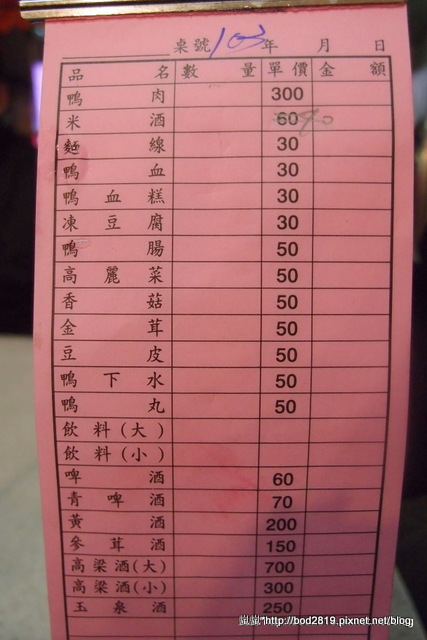 桌號 103 年 月 日
品名 數量 單價 金額
鴨肉 300
米酒 60 90
麵線 30
鴨血 30
鴨血糕 30
凍豆腐 30
鴨腸 50
高麗菜 50
香菇 50
金茸 50
豆皮 50
鴨下水 50
鴨丸 50
飲料(大)
飲料(小)
啤酒 60
青啤酒 70
黃酒 200
參茸酒 150
高梁酒(大) 700
高梁酒(小) 300
玉泉酒 250
嵐嵐"http://bod2819.pixnet.net/blog